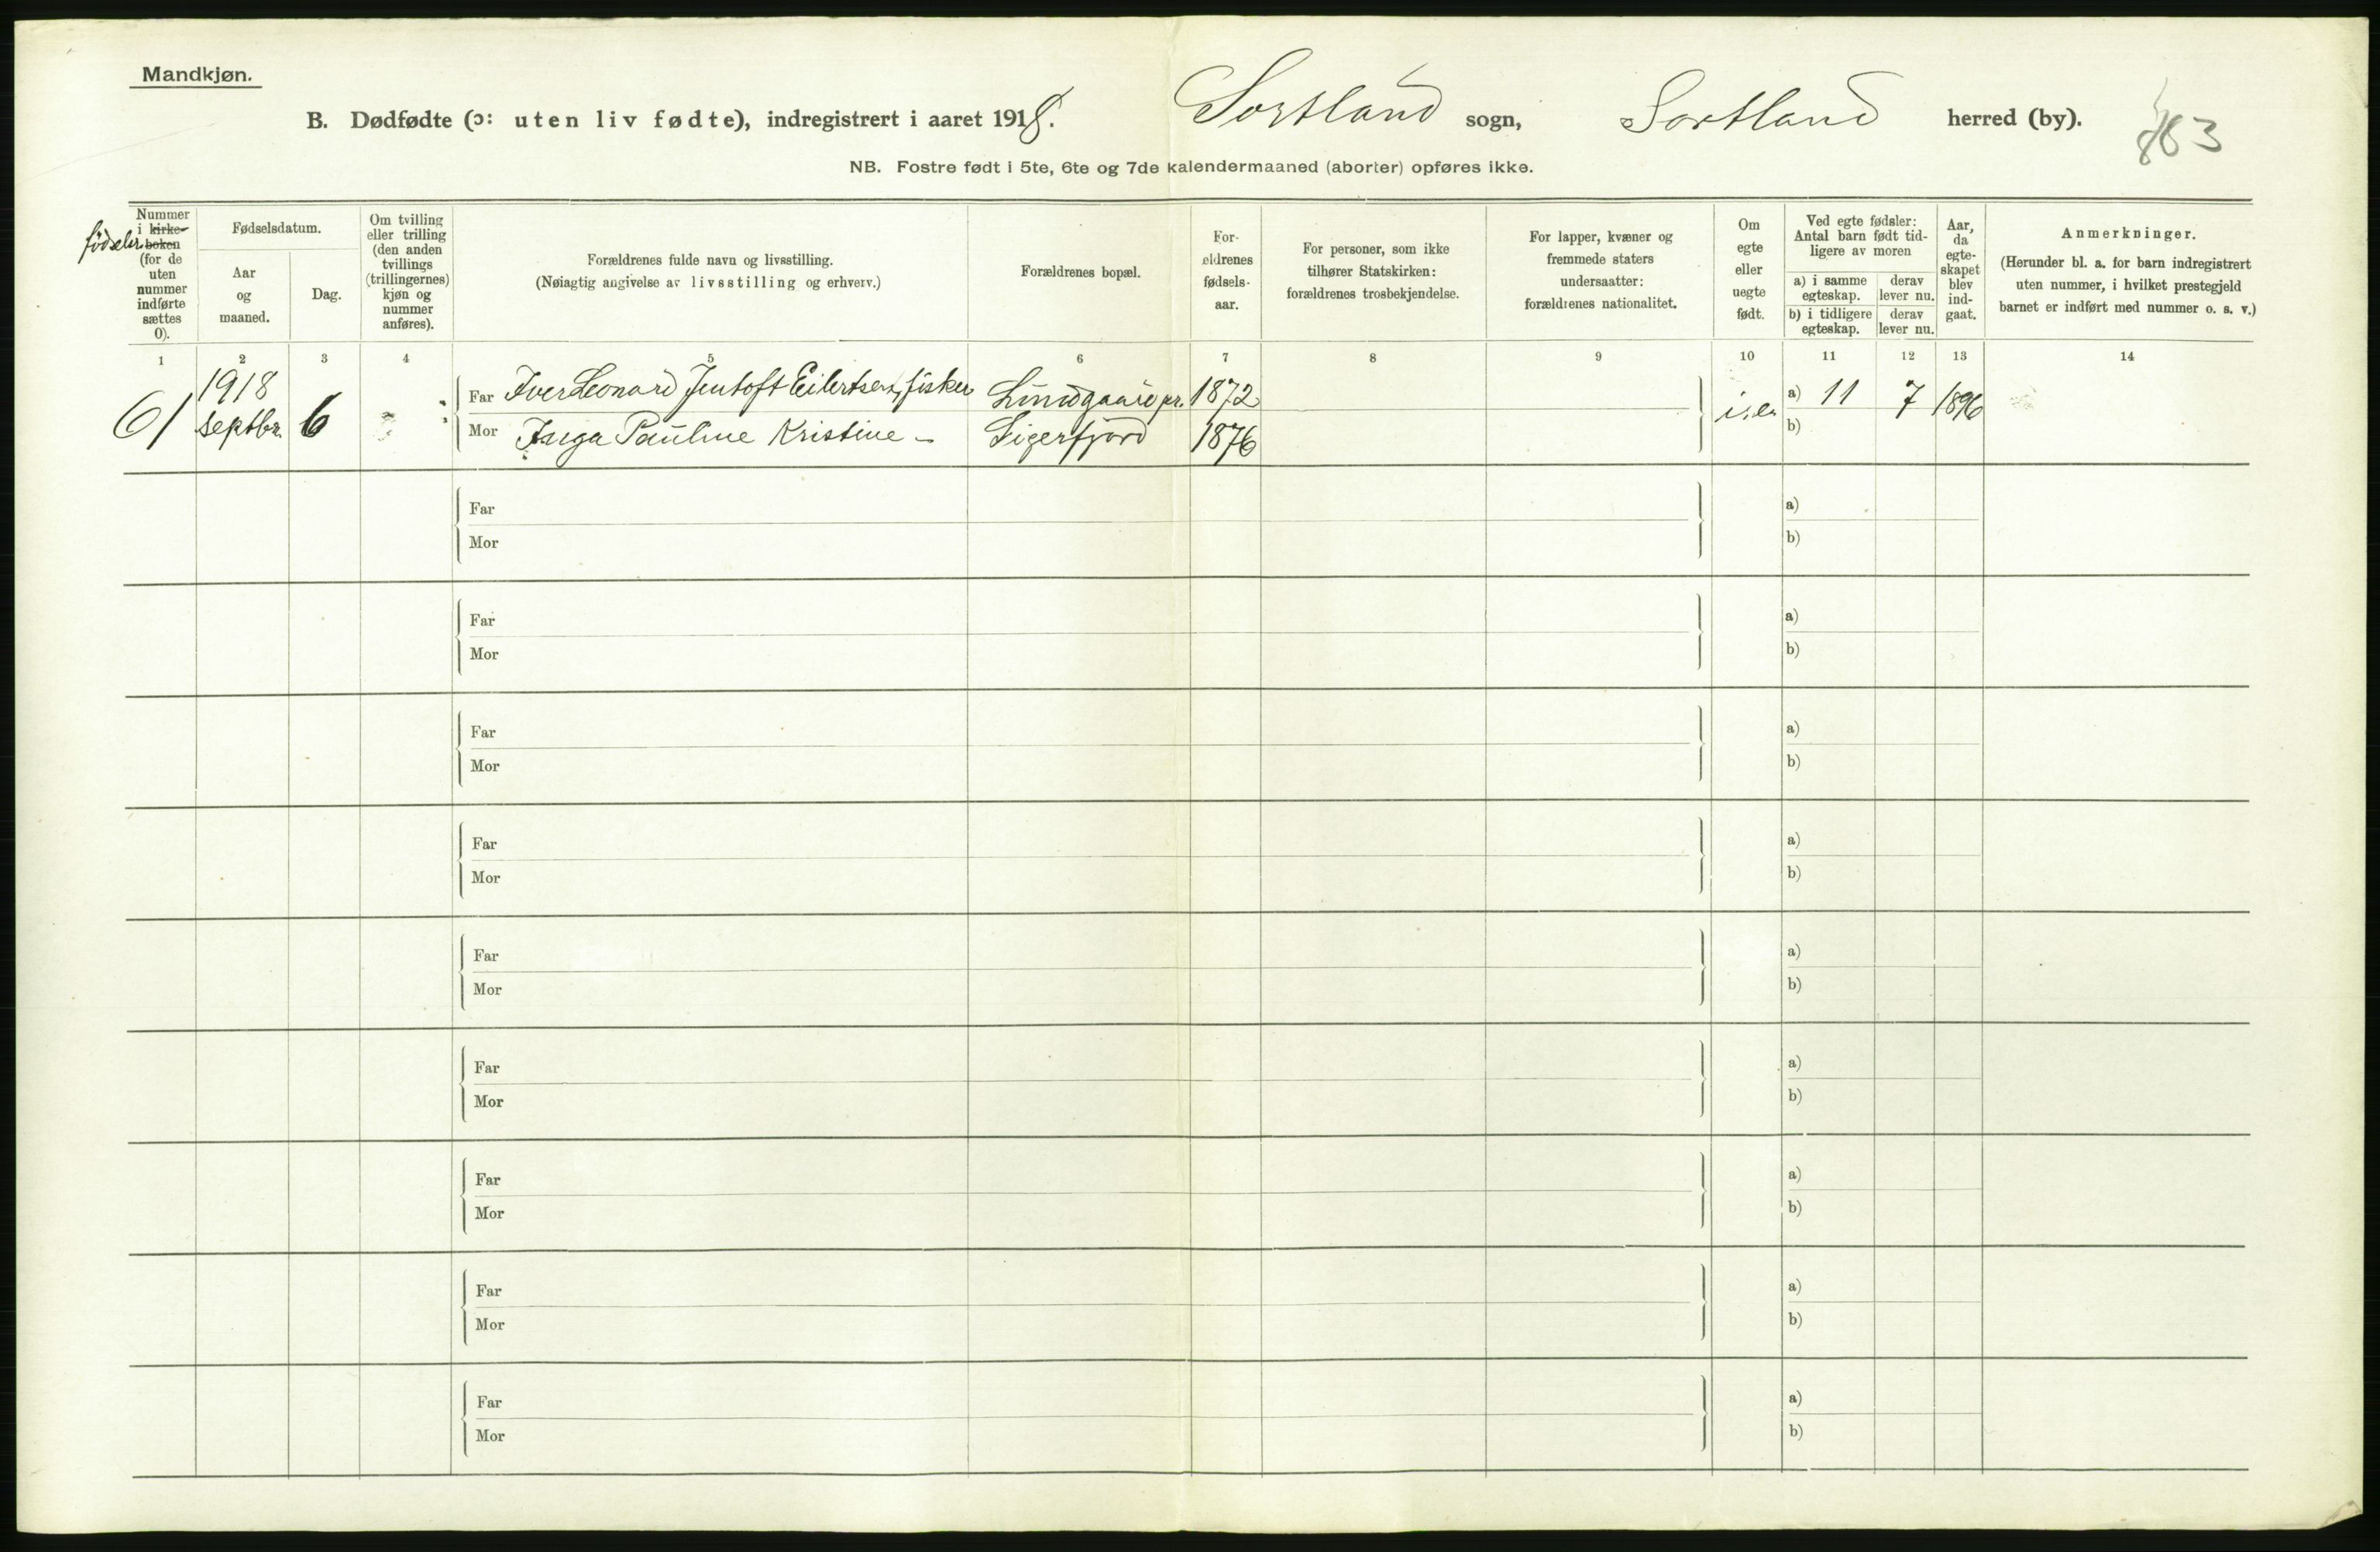 Mandkjøn.
B. Dødfødte (ɔ: uten liv fødte), indregistrert i aaret 1918. Sortland sogn, Sortland herred (by).
NB. Fostre født i 5te, 6te og 7de kalendermaaned (aborter) opføres ikke.
Nummer
i kirke-
boken
(for de
uten
nummer
indførte
sættes
0).
Fødselsdatum.
Aar
og
maaned.
Dag.
Om tvilling
eller trilling
(den anden
tvillings
(trillingernes)
kjøn og
nummer
anføres).
Forældrenes fulde navn og livsstilling.
(Nøiagtig angivelse av livsstilling og erhverv.)
Forældrenes bopæl.
For-
ældrenes
fødsels-
aar.
For personer, som ikke
tilhører Statskirken:
forældrenes trosbekjendelse.
For lapper, kvæner og
fremmede staters
undersaatter:
forældrenes nationalitet.
Om
egte
eller
uegte
født.
Ved egte fødsler:
Antal barn født tid-
ligere av moren
a) i samme
egteskap.
derav
lever nu.
b) i tidligere
egteskap.
derav
lever nu.
Aar,
da
egte-
skapet
blev
ind-
gaat.
Anmerkninger.
(Herunder bl. a. for barn indregistrert
uten nummer, i hvilket prestegjeld
barnet er indført med nummer o. s. v.)
1 2 3 4 5 6 7 8 9 10 11 12 13 14
61 1918 septbr. 6
Far Iver Leonard Jentoft Eilertsen, fisker Lundgaard pr. 1872 a) 11 7 1896
Mor Inga Pauline Kristine - Sigerfjord 1876 b)
Far a)
Mor b)
Far a)
Mor b)
Far a)
Mor b)
Far a)
Mor b)
Far a)
Mor b)
Far a)
Mor b)
Far a)
Mor b)
Far a)
Mor b)
Far a)
Mor b)